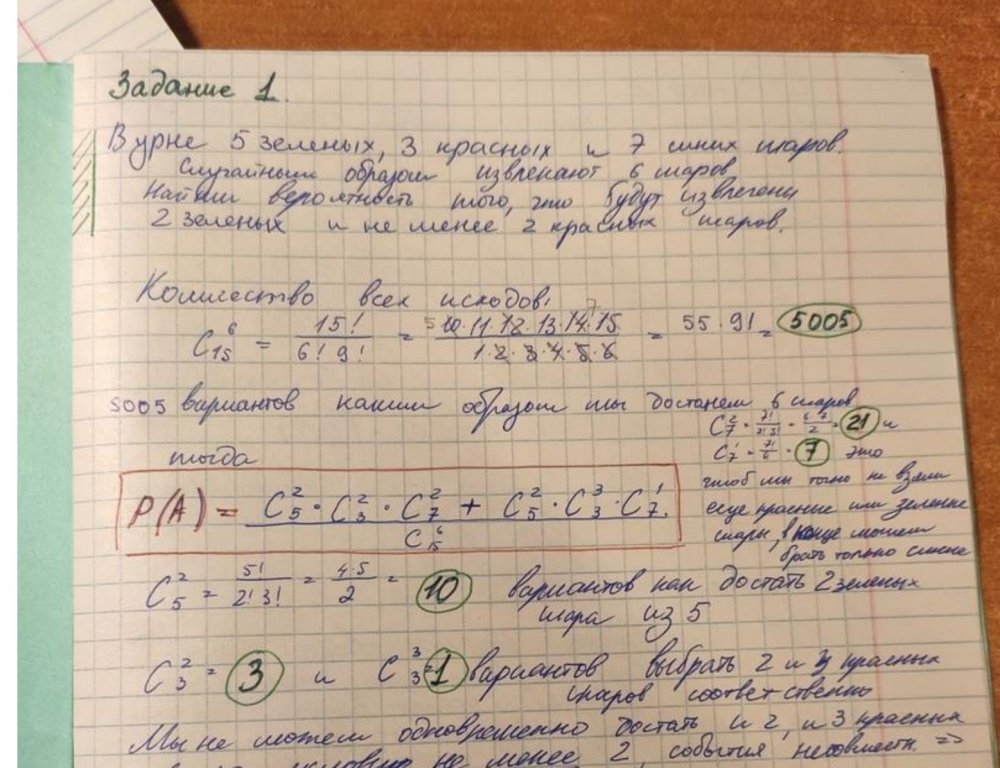 Задание 1.
В урне 5 зеленых, 3 красных и 7 синих шаров.
Случайным образом извлекают 6 шаров
Найти вероятность того, что будут извлечены
2 зеленых и не менее 2 красных шаров.
Количество всех исходов:
C₁₅⁶ = 15! / 6! 9! = 10·11·12·13·14·15 / 1·2·3·4·5·6 = 55·91 = 5005
5005 вариантов каким образом мы достанем 6 шаров
тогда
P(A) = C₅²·C₃²·C₇² + C₅²·C₃³·C₇¹ / C₁₅⁶
C₇² = = 21 и
C₇¹ = = 7 это
чтоб мы точно не взяли
еще красные или зеленые
шары, в конце можем
брать только синие
C₅² = 5! / 2! 3! = 4·5 / 2 = 10 вариантов как достать 2 зеленых
шара из 5
C₃² = 3 и C₃³ = 1 вариантов выбрать 2 и 3 красных
шаров соответственно
Мы не можем одновременно достать и 2, и 3 красных
не менее 2, события несовместн. =>